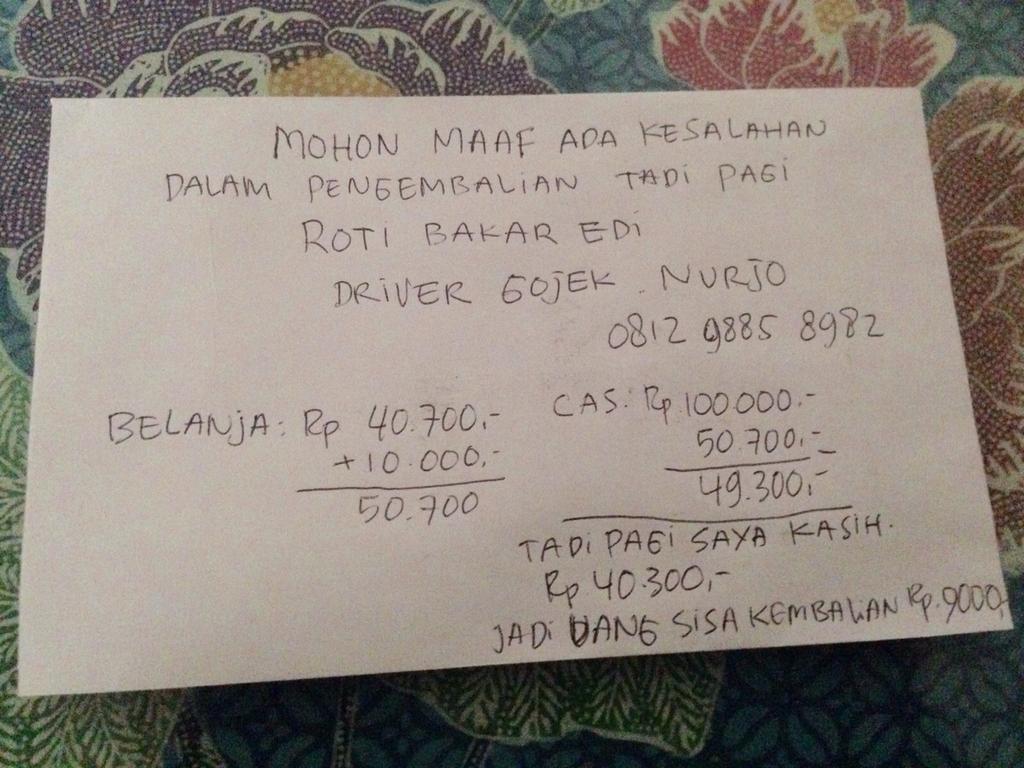 MOHON MAAF ADA KESALAHAN
DALAM PENGEMBALIAN TADI PAGI
ROTI BAKAR EDI
DRIVER GOJEK. NURJO
0812 9885 8982
BELANJA: Rp 40.700,-
+10.000,-
50.700
CAS: Rp 100.000.-
50.700,-
49.300,-
TADI PAGI SAYA KASIH.
Rp 40.300,-
JADI UANG SISA KEMBALIAN Rp.9000,-